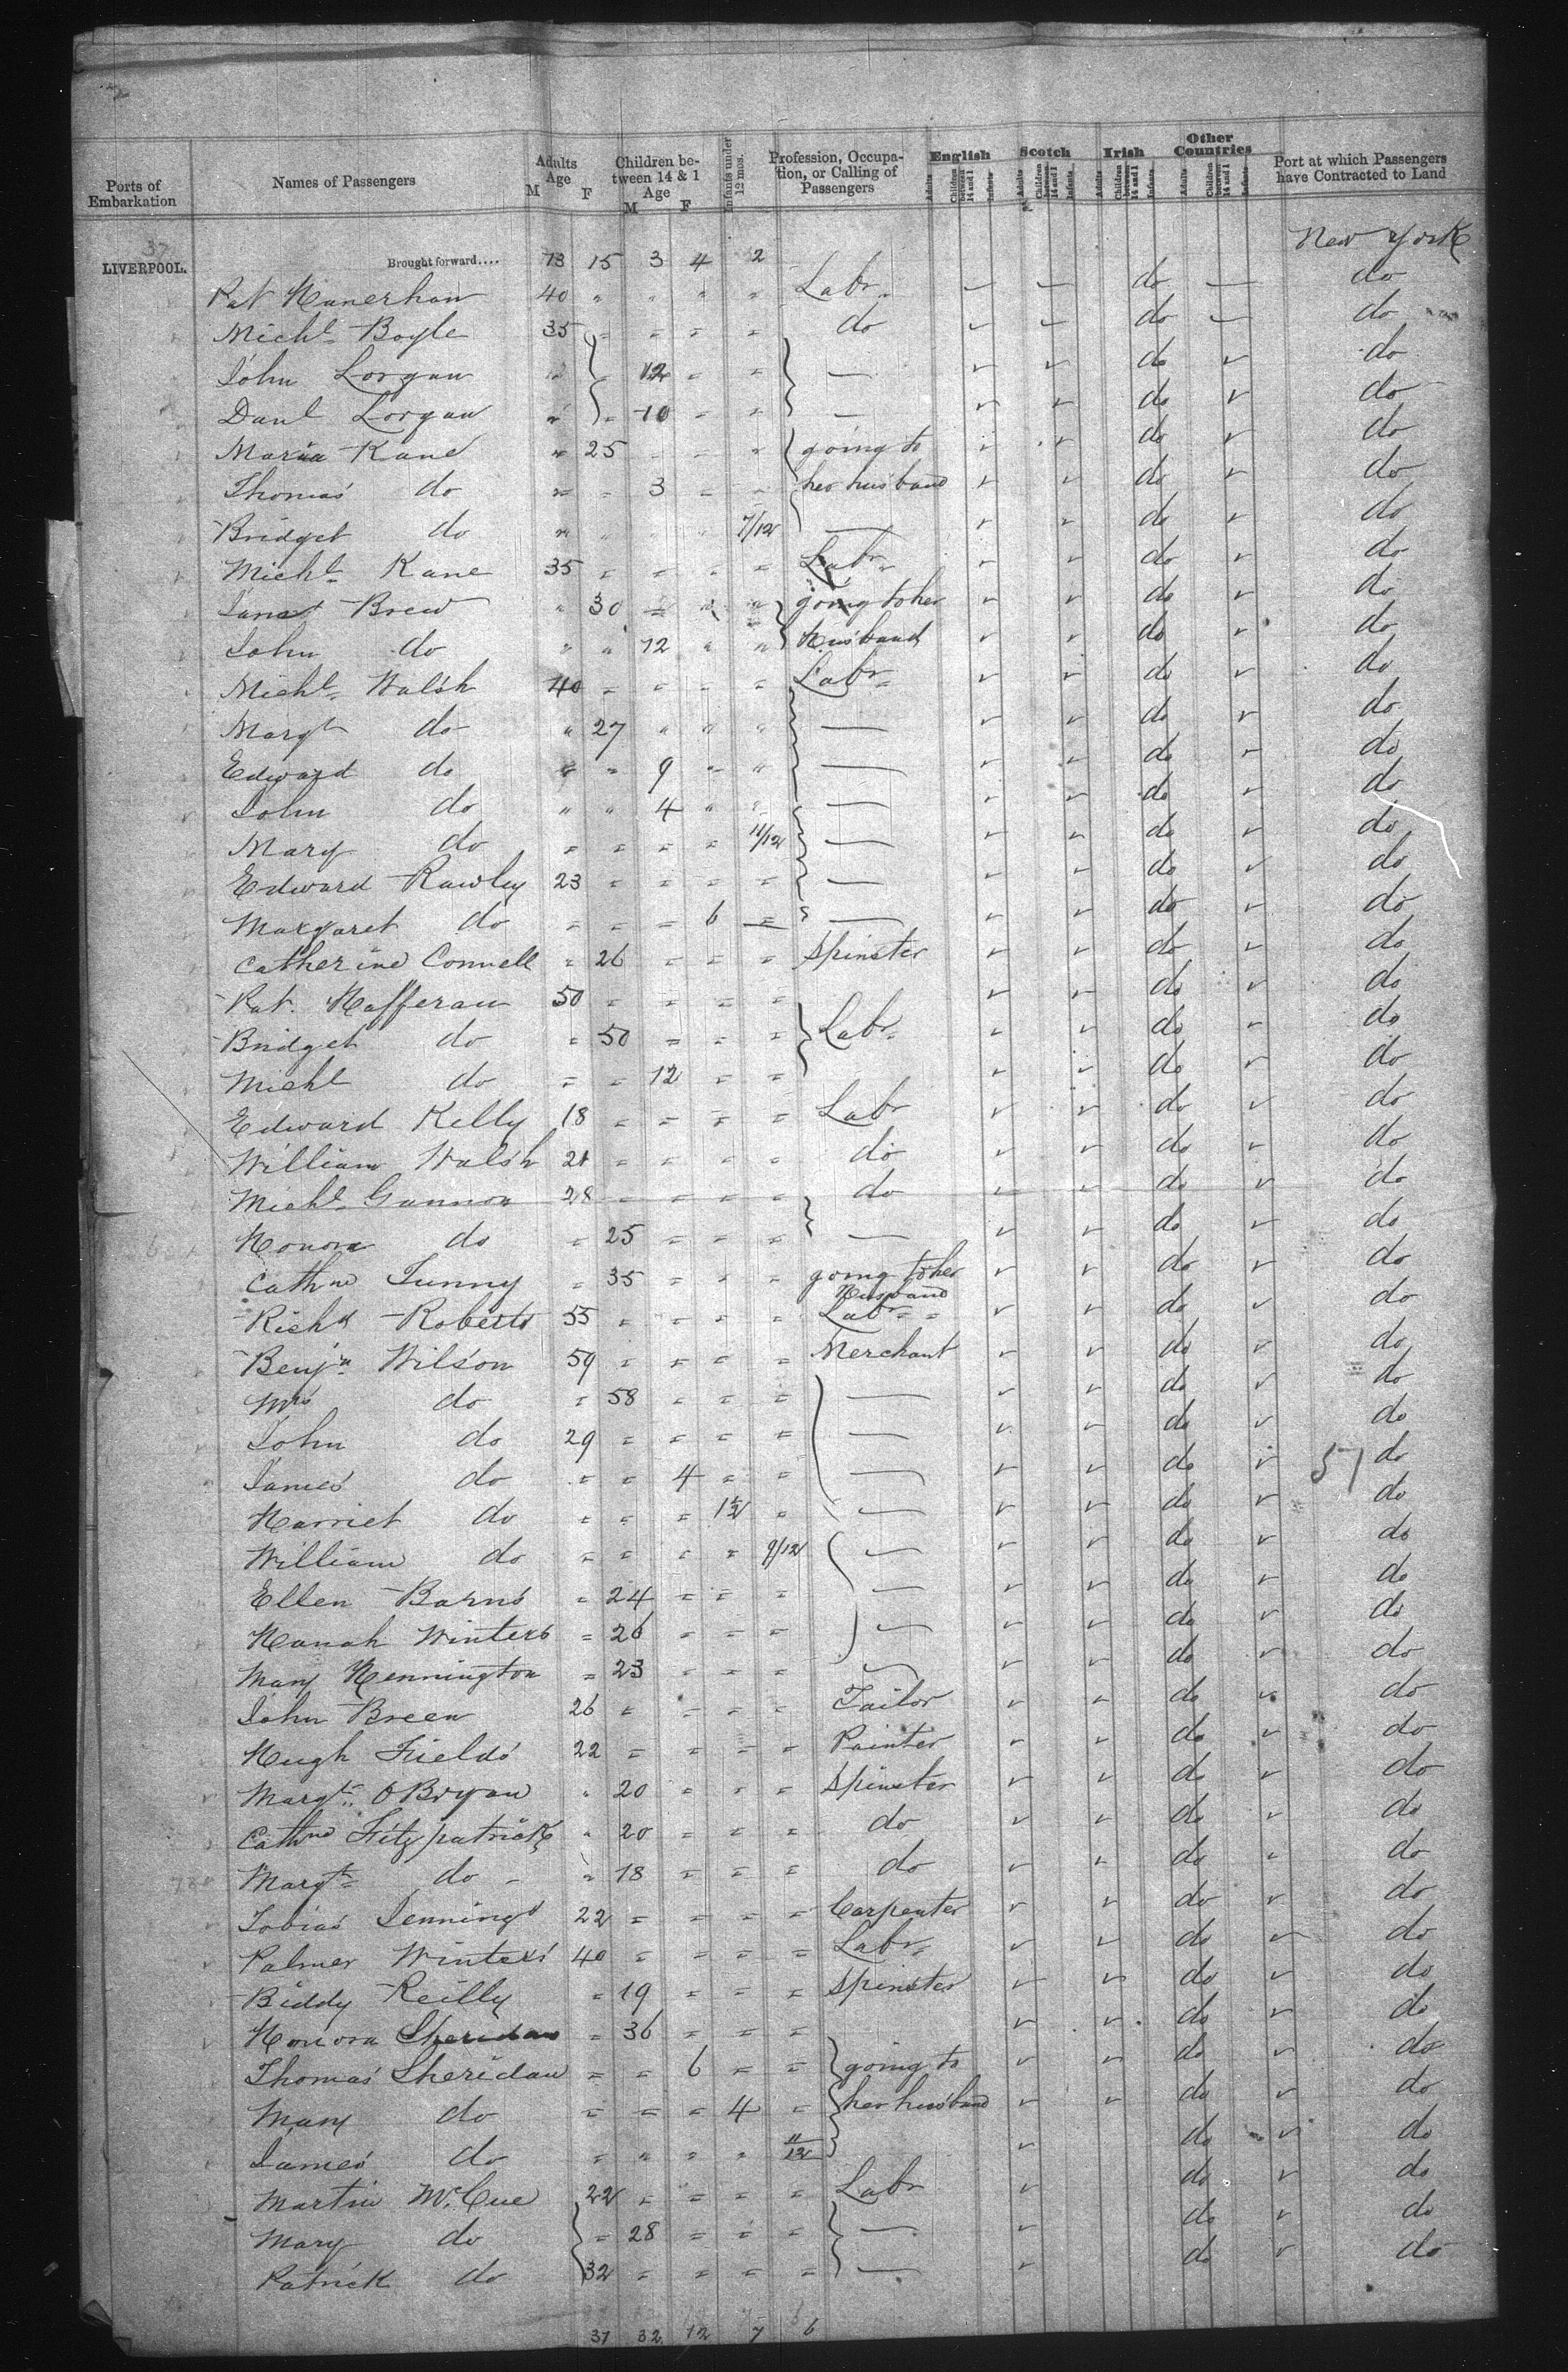 Ports of Embarkation | Names of Passengers | Adults Age M F | Children between 14 & 1 Age M F | Infants under 12 mos. | Profession, Occupation, or Calling of Passengers | English Adults Children between 14 and 1 Infants | Scotch Adults Children between 14 and 1 Infants | Irish Adults Children between 14 and 1 Infants | Other Countries Adults Children between 14 and 1 Infants | Port at which Passengers have Contracted to Land
New York
37
LIVERPOOL. Brought forward.... 13 15 3 4 2
Pat Hanerhan 40 " " " " Labr — — do — do
Michl Boyle 35 " " " " do do do
John Lorgan " " 12 " " — do do
Danl Lorgan " " 10 " " — do do
Maria Kane " 25 " " " going to do do
Thomas do " " 3 " " her husband do do
Bridget do " " " " 7/12 — do do
Michl Kane 35 " " " " Labr do do
Jane Brew " 30 " " " going to her do do
John do " " 12 " " husband do do
Michl Walsh 40 " " " " Labr do do
Margt do " 27 " " " — do do
Edward do " " 9 " " — do do
John do " " 4 " " — do do
Mary do " " " " 11/12 — do do
Edward Rawley 23 " " " " — do do
Margaret do " " " 6 " — do do
Catherine Connell " 26 " " " Spinster do do
Pat. Hafferan 50 " " " " do do
Bridget do " 50 " " " Labr do do
Michl do " " 12 " " do do
Edward Kelly 18 " " " " Labr do do
William Walsh 21 " " " " do do do
Michl Gannon 28 " " " " do do do
Honora do " 25 " " " — do do
Cathne Tunny " 35 " " " going to her Husband do do
Richd Roberts 55 " " " " Labr do do
Benjn Wilson 59 " " " " Merchant do do
Mrs do " 58 " " " — do do
John do 29 " " " " — do do
James do " " 4 " " — do 51 do
Harriet do " " " 1½ " — do do
William do " " " " 9/12 — do do
Ellen Barns " 24 " " " — do do
Hanah Winters " 26 " " " — do do
Mary Hennington " 23 " " " — do do
John Breen 26 " " " " Tailor do do
Hugh Fields 22 " " " " Painter do do
Margt. O Bryan " 20 " " " Spinster do do
Cathne Fitzpatrick " 20 " " " do do do
Margt do " 18 " " " do do do
Tobias Jennings 22 " " " " Carpenter do do
Palmer Winters 40 " " " " Labr do do
Biddy Reilly " 19 " " " Spinster do do
Honora Sheridan " 36 " " " do do
Thomas Sheridan " " 6 " " going to do do
Mary do " " " 4 " her husband do do
James do " " " " 11/12 do do
Martin McCue 22 " " " " Labr do do
Mary do " 28 " " " — do do
Patrick do 32 " " " " — do do
37 32 12 7 6